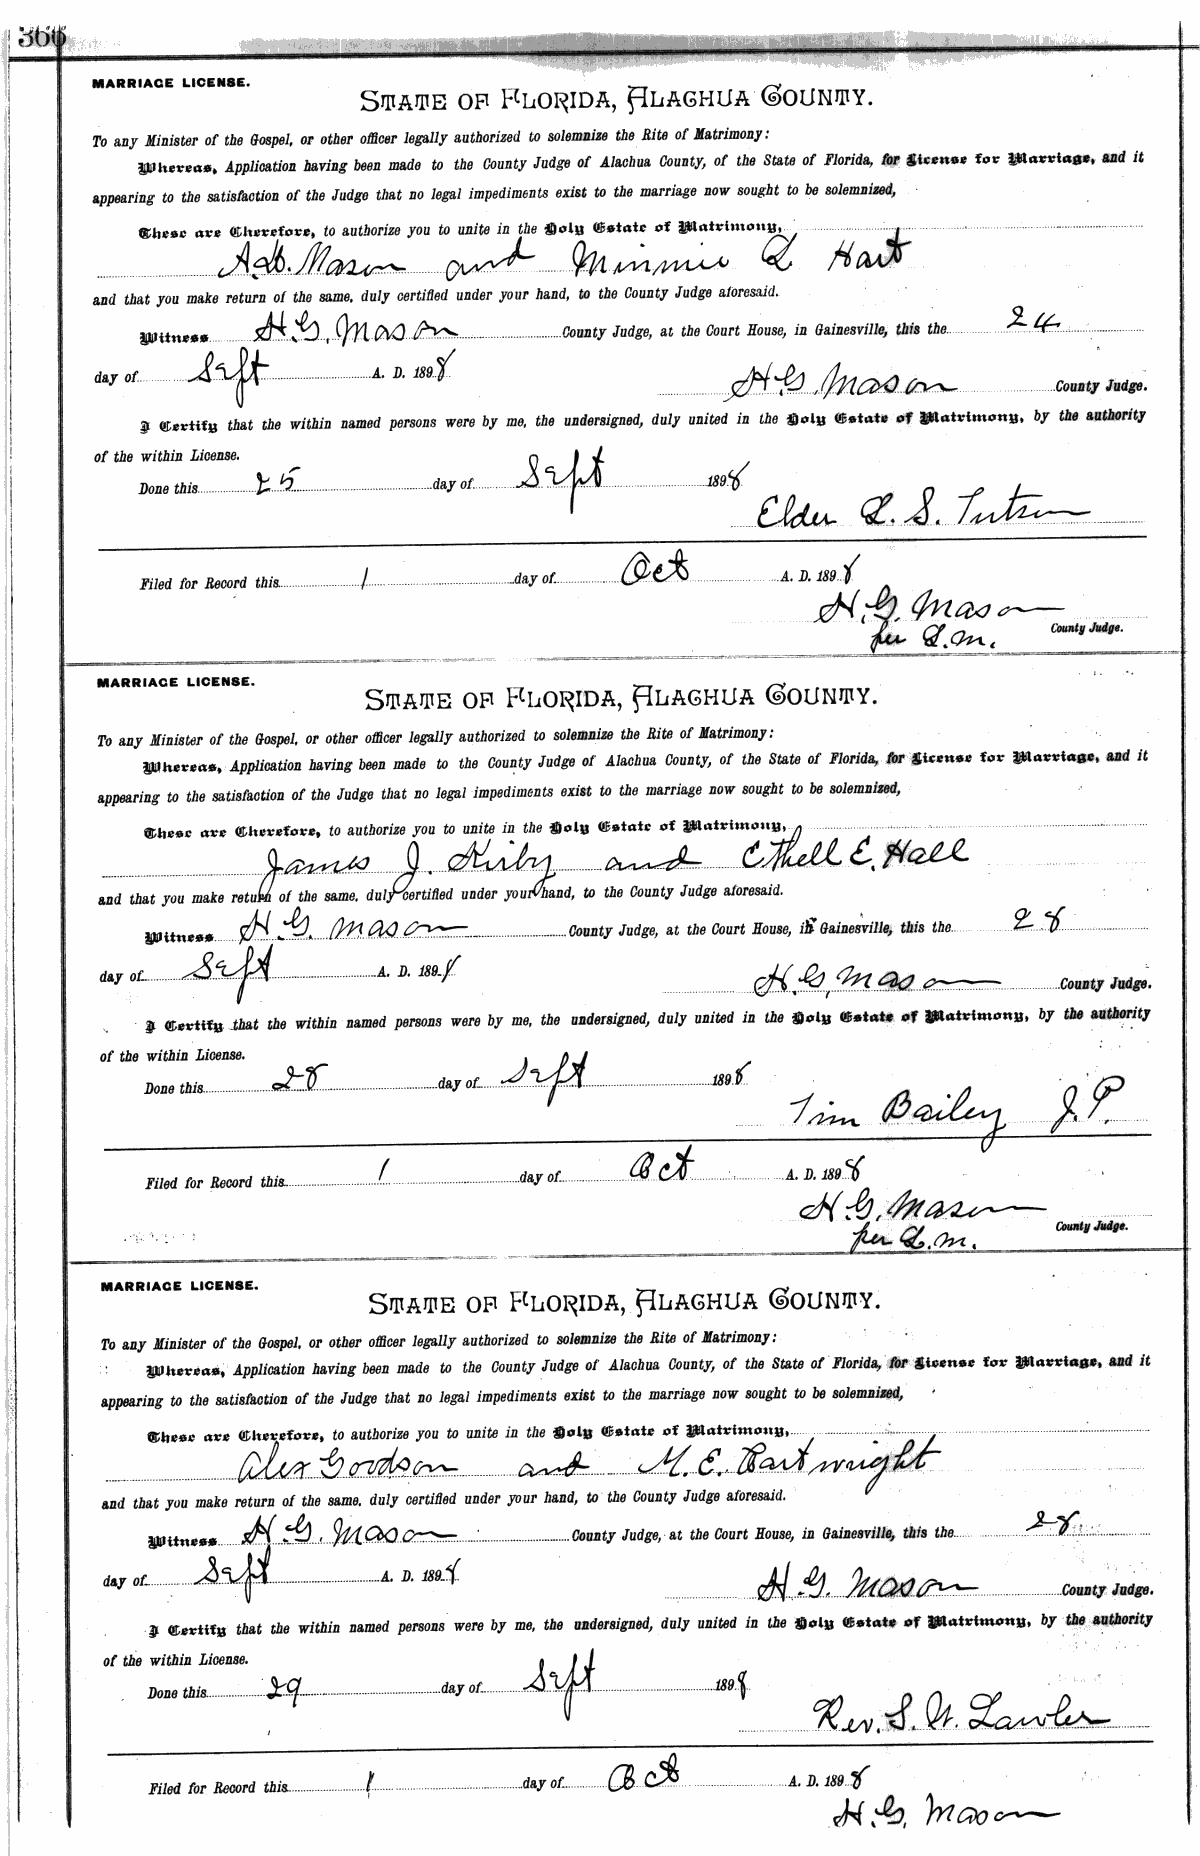 366
MARRIAGE LICENSE.
STATE OF FLORIDA, ALACHUA COUNTY.
To any Minister of the Gospel, or other officer legally authorized to solemnize the Rite of Matrimony:
Whereas, Application having been made to the County Judge of Alachua County, of the State of Florida, for License for Marriage, and it
appearing to the satisfaction of the Judge that no legal impediments exist to the marriage now sought to be solemnized,
These are Therefore, to authorize you to unite in the Holy Estate of Matrimony,
Mason and Minnie L Hart
and that you make return of the same, duly certified under your hand, to the County Judge aforesaid.
Witness H.G. Mason County Judge, at the Court House, in Gainesville, this the 24
day of Sept A. D. 1898
H.G. Mason County Judge.
I Certify that the within named persons were by me, the undersigned, duly united in the Holy Estate of Matrimony, by the authority
of the within License.
Done this 25 day of Sept 1898
Elder L. S.
Filed for Record this 1 day of Oct A. D. 1898
H.G. Mason
per L.M. County Judge.
MARRIAGE LICENSE.
STATE OF FLORIDA, ALACHUA COUNTY.
To any Minister of the Gospel, or other officer legally authorized to solemnize the Rite of Matrimony:
Whereas, Application having been made to the County Judge of Alachua County, of the State of Florida, for License for Marriage, and it
appearing to the satisfaction of the Judge that no legal impediments exist to the marriage now sought to be solemnized,
These are Therefore, to authorize you to unite in the Holy Estate of Matrimony,
James J. Kirby and Ethell E. Hall
and that you make return of the same, duly certified under your hand, to the County Judge aforesaid.
Witness H.G. Mason County Judge, at the Court House, in Gainesville, this the 28
day of Sept A. D. 1898
H.G. Mason County Judge.
I Certify that the within named persons were by me, the undersigned, duly united in the Holy Estate of Matrimony, by the authority
of the within License.
Done this 28 day of Sept 1898
Tim Bailey J.P.
Filed for Record this 1 day of Oct A. D. 1898
H.G. Mason
per L.M. County Judge.
MARRIAGE LICENSE.
STATE OF FLORIDA, ALACHUA COUNTY.
To any Minister of the Gospel, or other officer legally authorized to solemnize the Rite of Matrimony:
Whereas, Application having been made to the County Judge of Alachua County, of the State of Florida, for License for Marriage, and it
appearing to the satisfaction of the Judge that no legal impediments exist to the marriage now sought to be solemnized,
These are Therefore, to authorize you to unite in the Holy Estate of Matrimony,
Alex Goodson and M. E. Cartwright
and that you make return of the same, duly certified under your hand, to the County Judge aforesaid.
Witness H.G. Mason County Judge, at the Court House, in Gainesville, this the 28
day of Sept A. D. 1898
H.G. Mason County Judge.
I Certify that the within named persons were by me, the undersigned, duly united in the Holy Estate of Matrimony, by the authority
of the within License.
Done this 29 day of Sept 1898
Rev. S. W. Lawler
Filed for Record this 1 day of Oct A. D. 1898
H.G. Mason